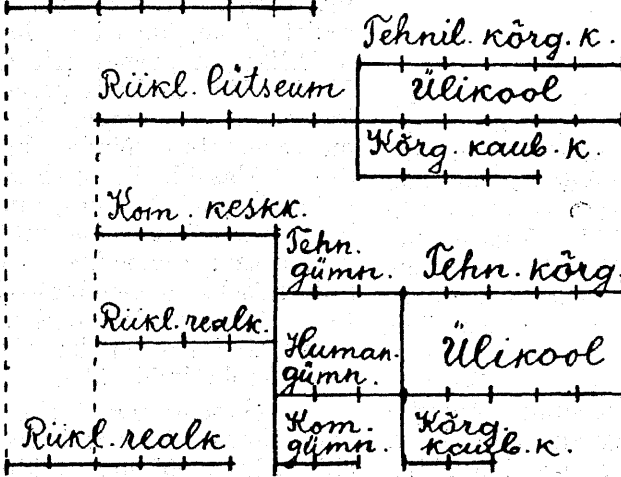 Tehnil. kõrg. k.
Riikl. lütseum
Ülikool
Kõrg. kaub. k.
Kom. keskk.
Tehn.
gümn.
Tehn. kõrg.
Riikl. realk.
Human.
gümn.
Ülikool
Riikl. realk
Kom.
gümn.
Kõrg.
kaub. k.